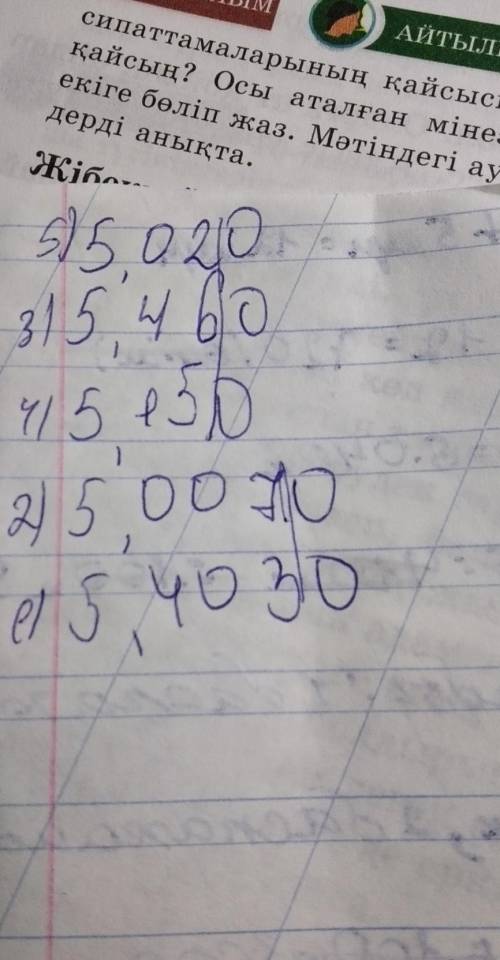 ЫМ
АЙТЫЛ
сипаттамаларының қайсыс
қайсың? Осы аталған міне
екіге бөліп жаз. Мәтіндегі ау
дерді анықта.
Жібек
5) 5,02|0
3) 5,46|0
4) 5,15|0
2) 5,007|0
1) 5,403|0